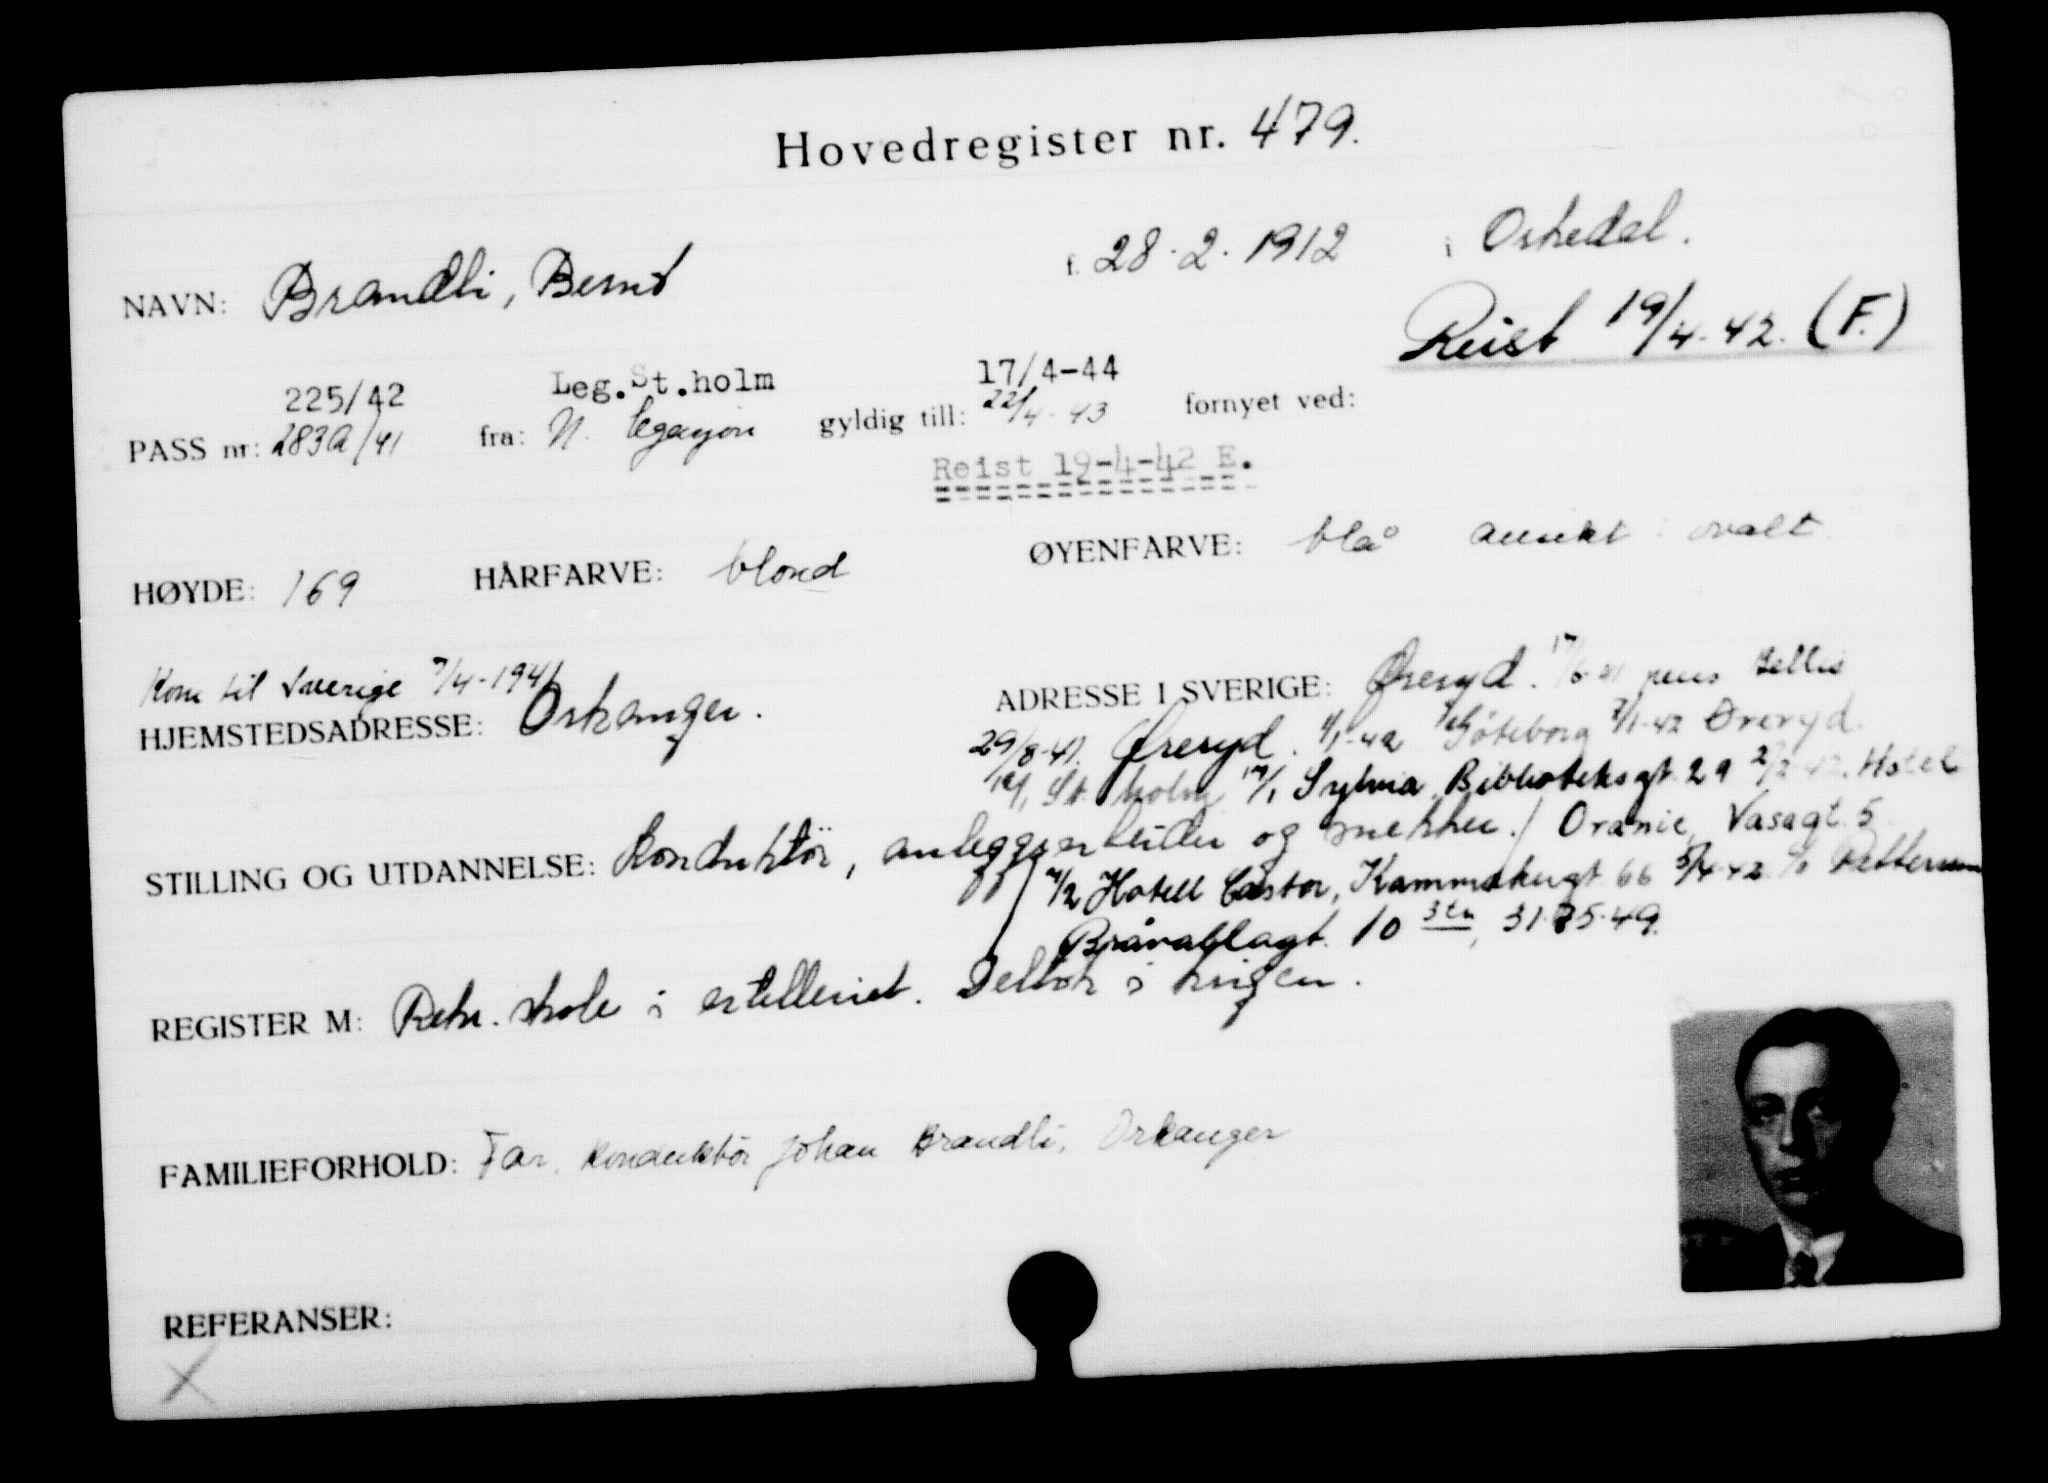 Hovedregister nr. 479.
NAVN: Brandli, Bernt f. 28.2.1912 i Orkedal.
Reist 19/4-42. (F.)
225/42 Leg.St.holm 17/4-44
PASS nr: 283a/41 fra: N. legasjon gyldig till: 22/4-43 fornyet ved:
Reist 19-4-42 E.
HØYDE: 169 HÅRFARVE: blond ØYENFARVE: blå ansikt: ovalt
Kom til Sverige 7/4-1941
HJEMSTEDSADRESSE: Orkanger. ADRESSE I SVERIGE: Øreryd. 17/6-41 pens Bellis
29/8-41. Øreryd. 1/1-42 Göteborg 7/1-42 Øreryd.
St. holm 17/1 Sylvia, Biblioteksgt. 29 2/2-42. Hotel
STILLING OG UTDANNELSE: Konduktör, anleggsarbeider og snekker. / Oranie, Vasagt. 5
4/2 Hotell Castor, Kammakergt. 66 5/4-42 c/o Pettersson
Bråvallagt. 10 3tr, 31.75.49.
REGISTER M: Rekr. skole i artilleriet. Deltok i krigen.
FAMILIEFORHOLD: Far, konduktör Johan Brandli, Orkanger
REFERANSER:
X